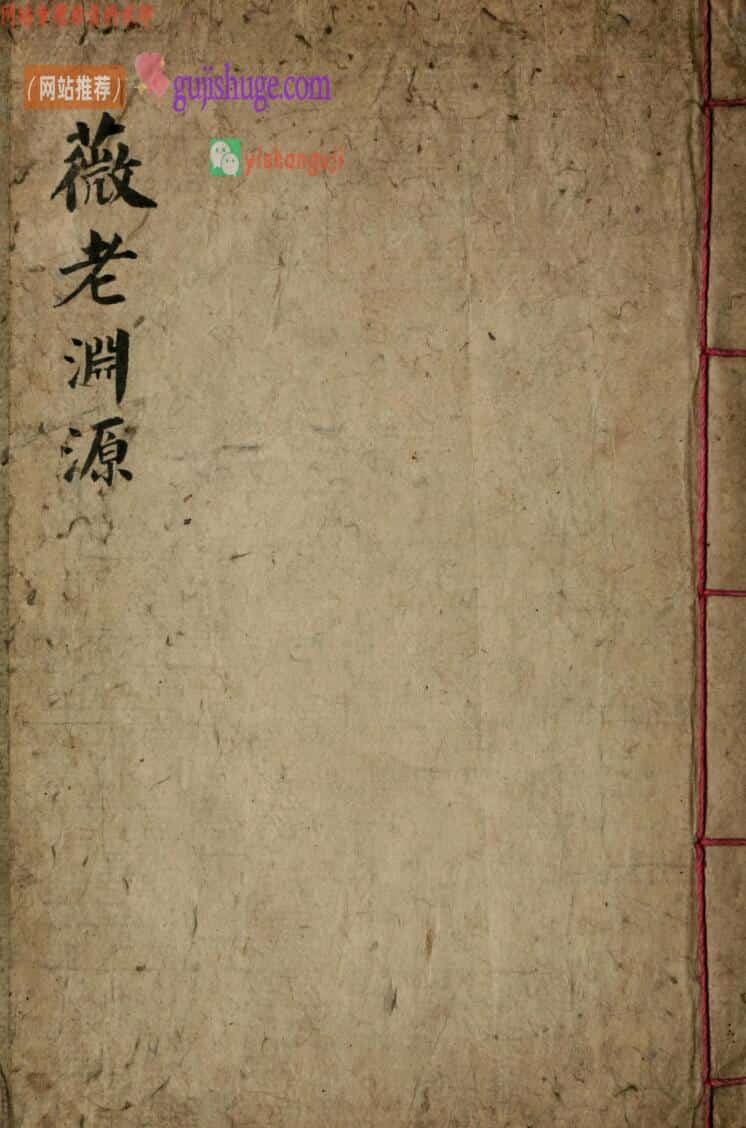 （网站推荐） gujishuge.com
yishanguji
薇老淵源